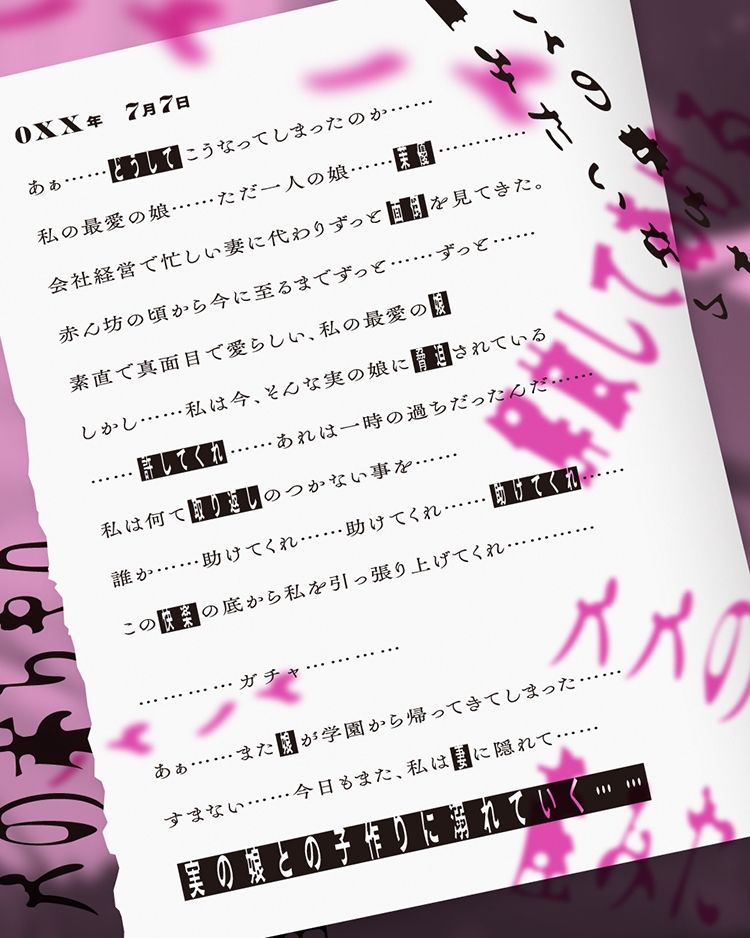 0XX年 7月7日
あぁ……どうしてこうなってしまったのか……
私の最愛の娘……ただ一人の娘……茉優…………
会社経営で忙しい妻に代わりずっと面倒を見てきた。
赤ん坊の頃から今に至るまでずっと……ずっと……
素直で真面目で愛らしい、私の最愛の娘
しかし……私は今、そんな実の娘に脅迫されている
……許してくれ……あれは一時の過ちだったんだ……
私は何て取り返しのつかない事を……
誰か……助けてくれ……助けてくれ……助けてくれ……
この快楽の底から私を引っ張り上げてくれ…………
…………ガチャ…………
あぁ……また娘が学園から帰ってきてしまった……
すまない……今日もまた、私は妻に隠れて……
実の娘との子作りに溺れていく……